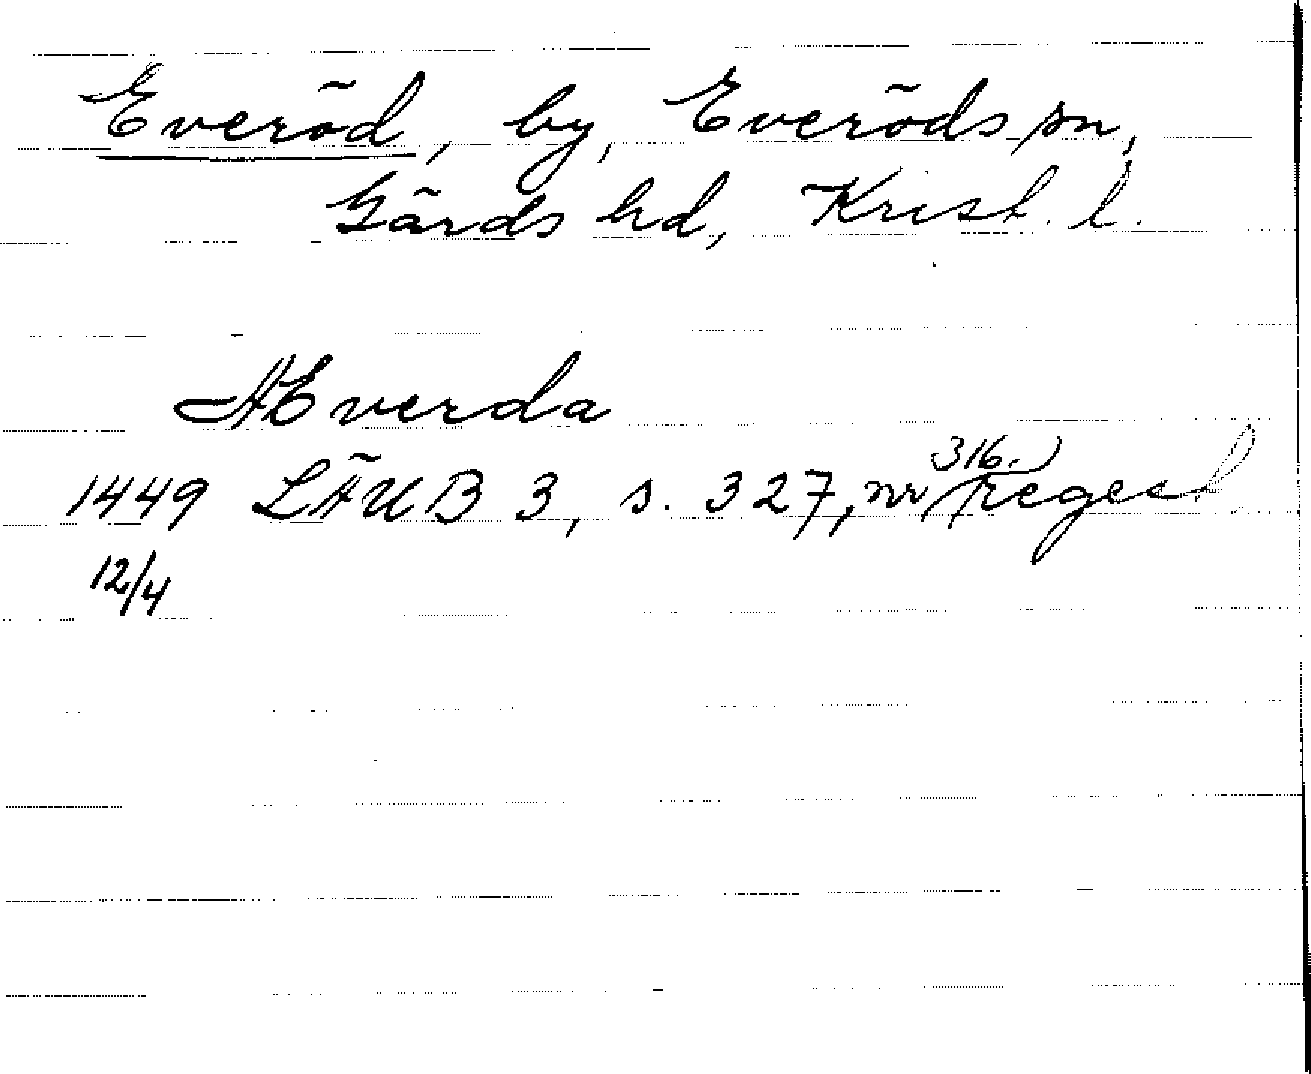 Everöd, by, Everöds sn,
Gärds hd, Krist. l.
AEverda
1449 LÄUB 3, s. 327, nr 316. (regest)
12/4